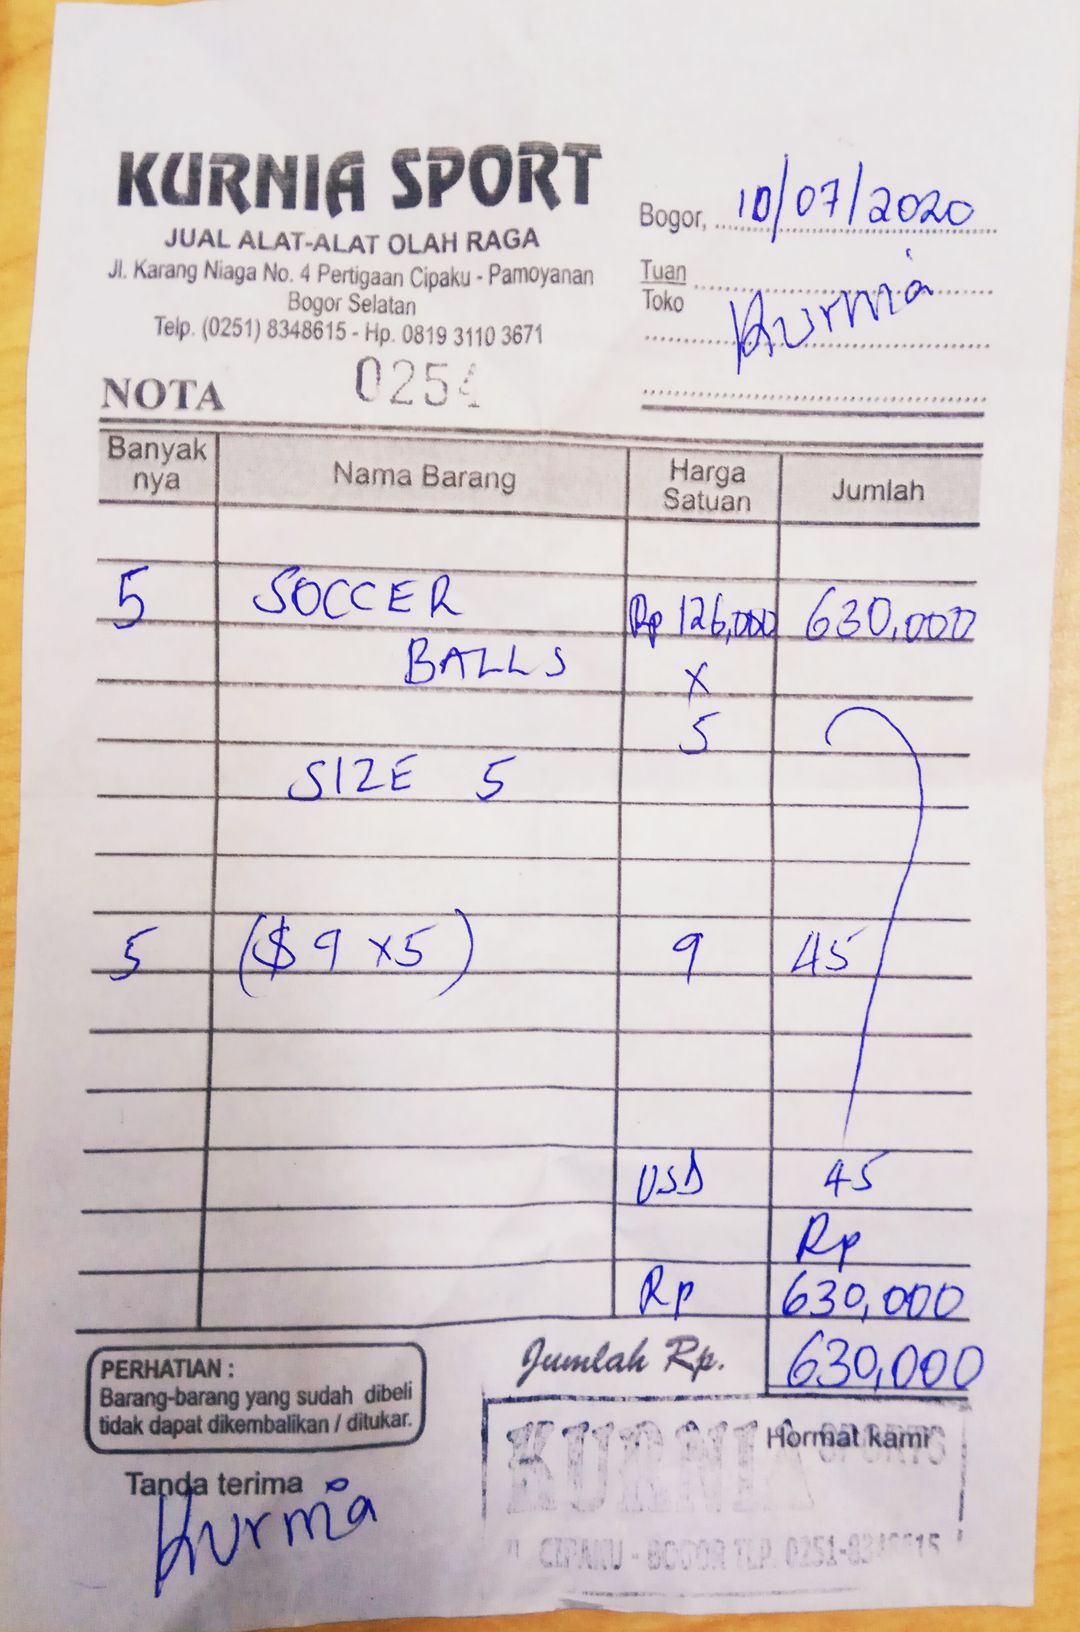 KURNIA SPORT
JUAL ALAT-ALAT OLAH RAGA
Jl. Karang Niaga No. 4 Pertigaan Cipaku - Pamoyanan
Bogor Selatan
Telp. (0251) 8348615 - Hp. 0819 3110 3671
Bogor, 10/07/2020
Tuan
Toko
Kurnia
NOTA 0254
Banyak nya Nama Barang Harga Satuan Jumlah
5 SOCCER Rp 126,000 630,000
BALLS x
5
SIZE 5
5 ($ 9 x5) 9 45
USD 45
Rp
Rp 630,000
Jumlah Rp. 630,000
PERHATIAN :
Barang-barang yang sudah dibeli
tidak dapat dikembalikan / ditukar.
Tanda terima
Kurnia
Hormat kami
KURNIA SPORTS
CIPAKU - BOGOR TLP. 0251-8348615